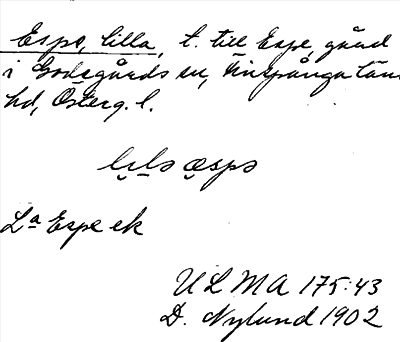 Espe, lilla, t. till Espe, gård
i Godegårds sn, Finspånga läns
hd, Österg. l.
lịlsə æspə
Lª Espe ek
ULMA 175:43
D. Nylund 1902